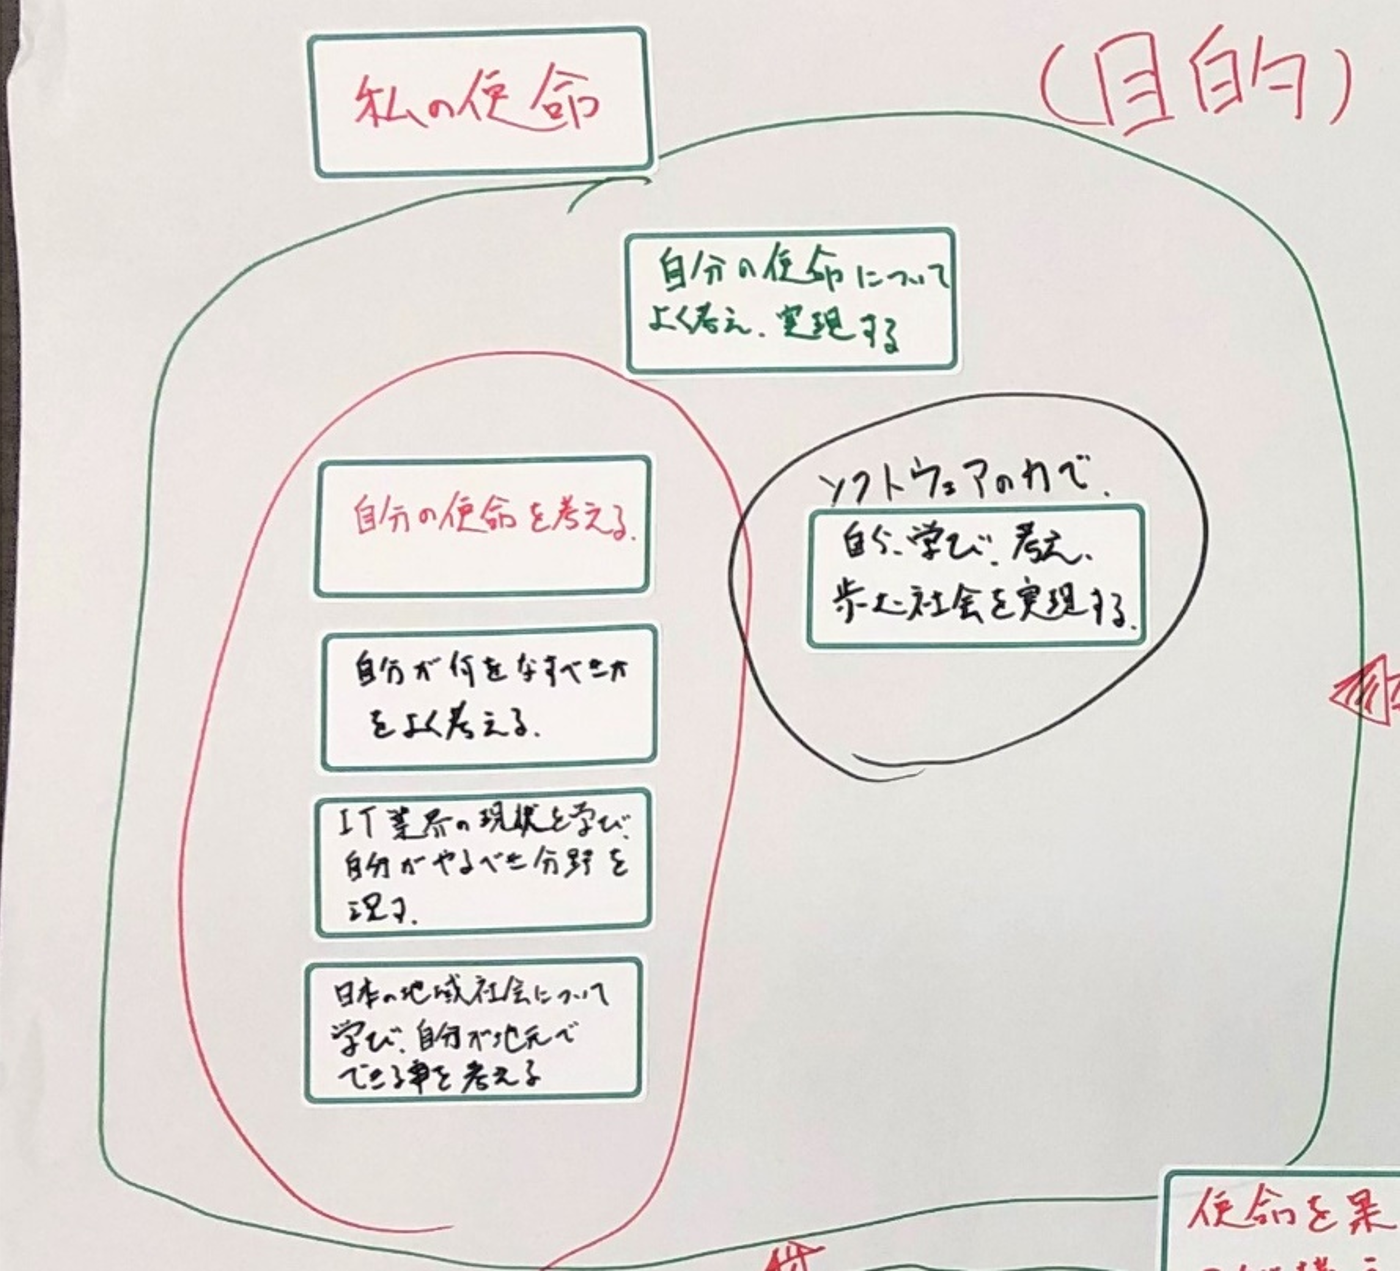 私の使命
(目的)
自分の使命について
よく考え、実現する
自分の使命を考える.
自分が何をなすべきか
をよく考える.
IT業界の現状を学び、
自分がやるべき分野を
現す.
日本の地域社会について
学び、自分が地元で
できる事を考える
ソフトウェアの力で、
自ら、学び、考え、
歩む社会を実現する.
使命を果